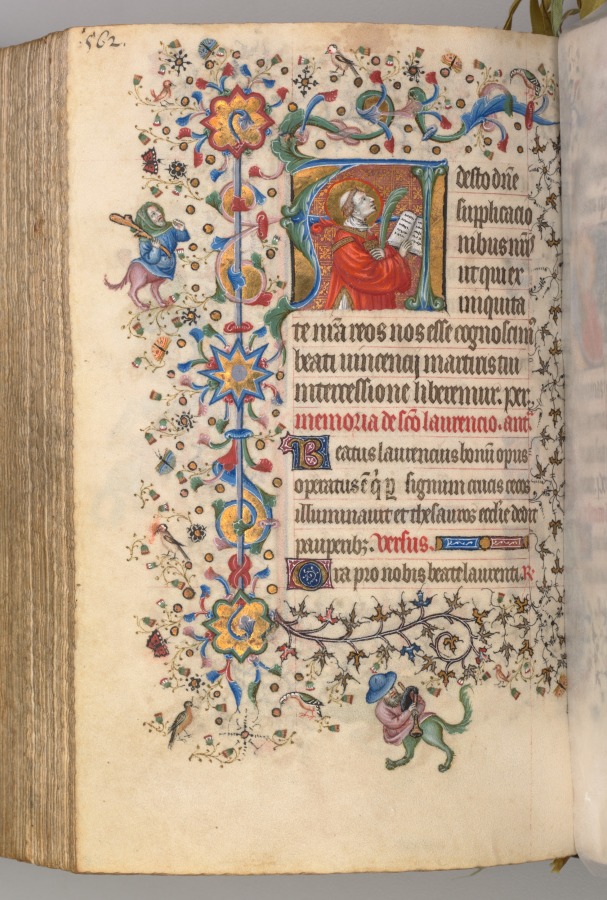 562.
Adesto dñe
supplicacio
nibus nr̃is
ut qui ex
iniquita
te nr̃a reos nos esse cognoscim͛
beati vincencij martiris tui
intercessione liberemur. per.
memoria de sc̃o laurencio. ant.
Beatus laurencius bonũ opus
operatus ẽ q̃ p̱ signum crucis cecos
illuminavit et thesauros eccl̃ie dedit
pauperibz. versus.
Ora pro nobis beate laurenti. R̷